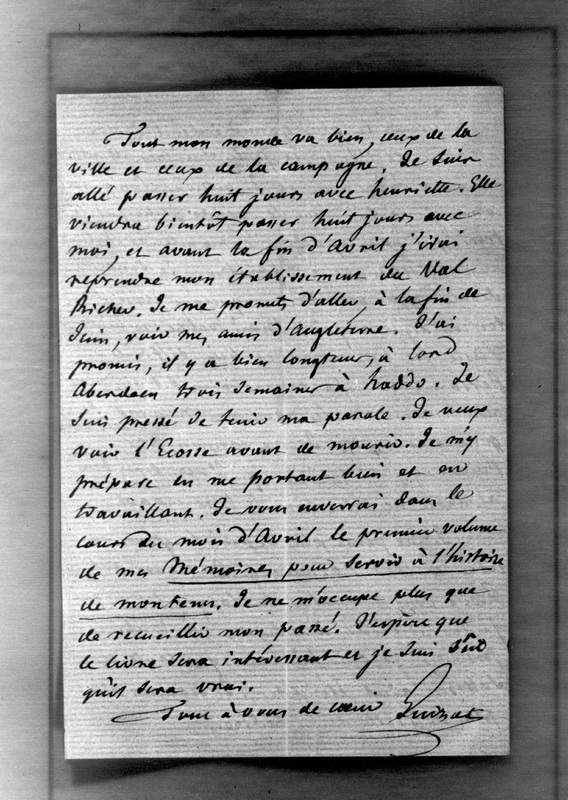 Tout mon monde va bien, ceux de la
ville et ceux de la campagne. Je suis
allé passer huit jours avec henriette. Elle
viendra bientôt passer huit jours avec
moi, et avant la fin d'Avril j'irai
reprendre mon établissement du Val
Richer. Je me promets d'aller, à la fin de
Juin, voir mes amis d'Angleterre. J'ai
promis, il y a bien longtems, à lord
Aberdeen trois semaines à haddo. Je
suis pressé de tenir ma parole. Je veux
voir l'Ecosse avant de mourir. Je m'y
prépare en me portant bien et en
travaillant. Je vous enverrai dans le
cours du mois d'Avril le premier volume
de mes Mémoires pour servir à l'histoire
de mon tems. Je ne m'occupe plus que
de recueillir mon passé. J'espère que
le livre sera intéressant et je suis sûr
qu'il sera vrai.
Tout à vous de coeur Guizot